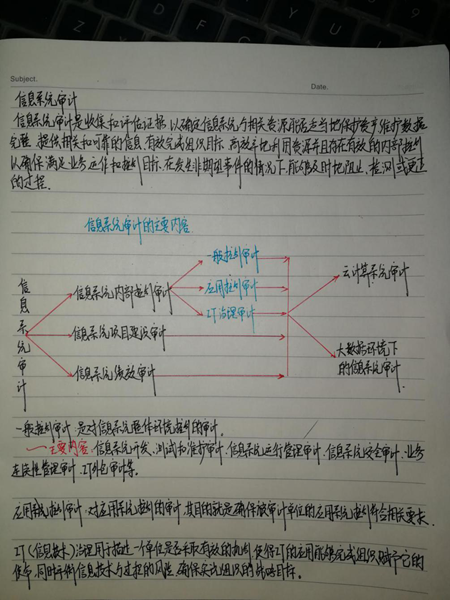 Subject.
Date.
信息系统审计
信息系统审计是收集和评估证据,以确定信息系统与相关资源能否适当地保护资产、维护数据
完整、提供相关和可靠的信息、有效完成组织目标、高效率地利用资源并且存在有效的内部控制
以确保满足业务运作和控制目标,在发生非期望事件的情况下,能够及时地阻止、检测或更正
的过程.
信息系统审计的主要内容
信息系统审计
信息系统内部控制审计
信息系统项目建设审计
信息系统绩效审计
一般控制审计
应用控制审计
IT治理审计
云计算系统审计
大数据环境下
的信息系统审计
一般控制审计 是对信息系统整体环境控制的审计.
主要内容:信息系统开发、测试和维护审计、信息系统运行管理审计、信息系统安全审计、业务
连续性管理审计、IT外包审计等.
应用系统控制审计:对应用系统控制的审计,其目的就是确保被审计单位的应用系统控制符合相关要求.
IT(信息技术)治理用于描述一个单位是否采取有效的机制,使得IT的应用能够完成组织赋予它的
使命,同时平衡信息技术与过程的风险、确保实现组织的战略目标.